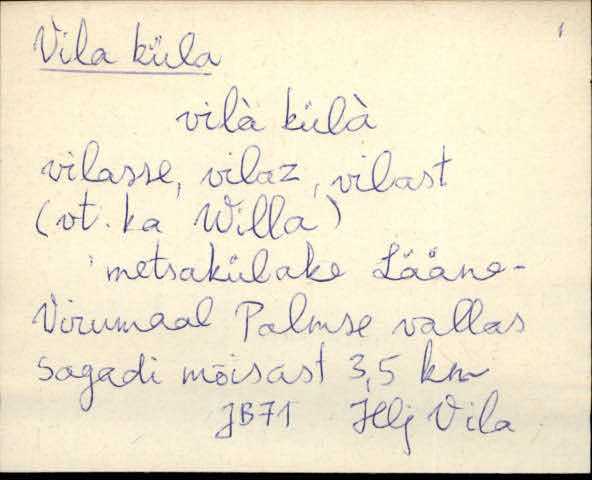 Vila küla
vilà külà
vilasse, vilaz, vilast
(vt. ka Willa)
metsakülake Lääne-
Virumaal Palmse vallas
Sagadi mõisast 3,5 km
JB71 Hlj Vila